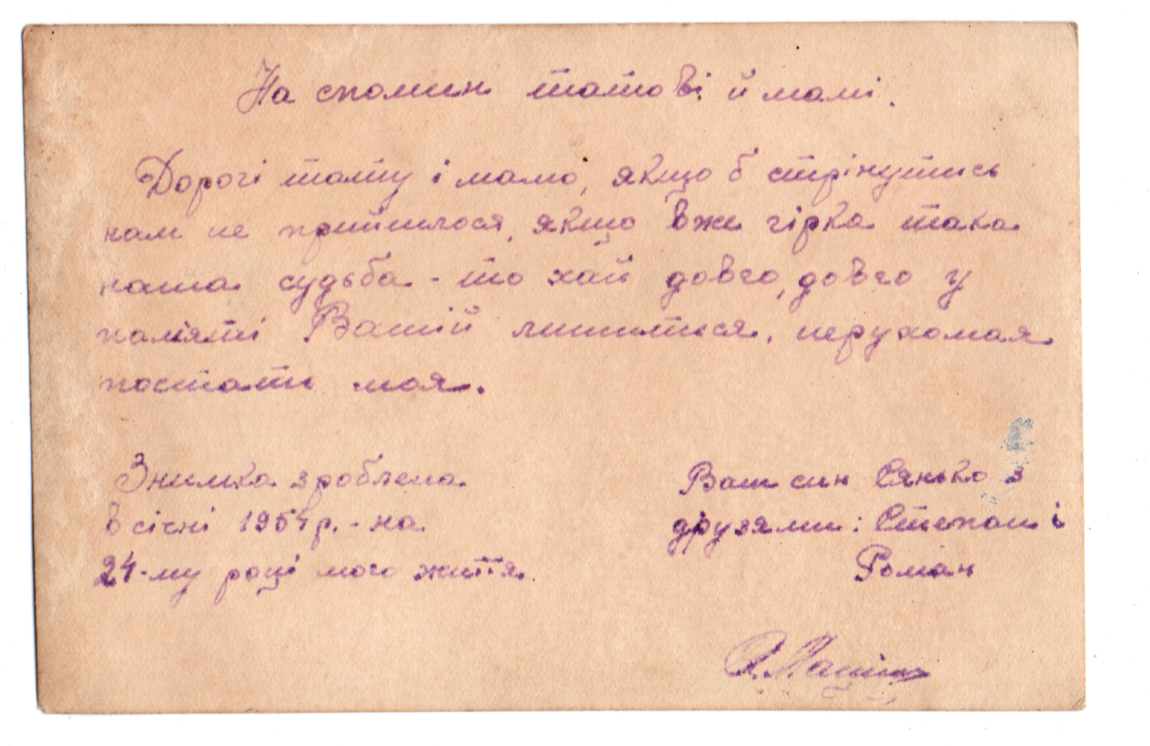 На спомин татові й мамі.
Дорогі тату і мамо, якщо б стрінутись
нам не прийшлося, якщо вже гірка така
наша судьба - то хай довго, довго у
пам'яті Вашій лишиться, нерухомая
постать моя.
Знимка зроблена
в січні 1954 р. - на
24-му році мого життя.
Ваш син Сянько з
друзями: Степан і
Роман